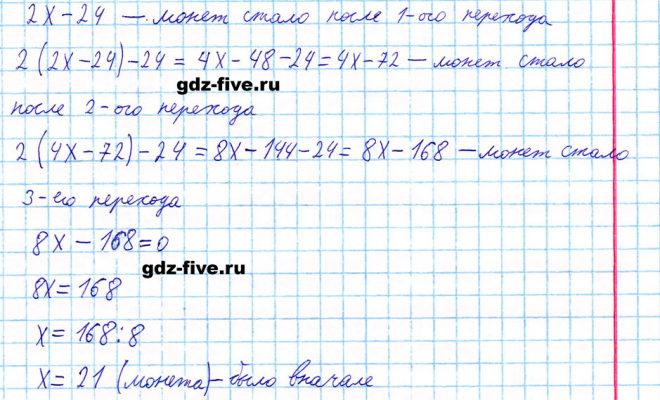 2х - 24 — монет стало после 1-ого перехода
2 (2х - 24) - 24 = 4х - 48 - 24 = 4х - 72 — монет стало
gdz-five.ru
после 2-ого перехода
2 (4х - 72) - 24 = 8х - 144 - 24 = 8х - 168 — монет стало
3-его перехода
8х - 168 = 0
gdz-five.ru
8х = 168
х = 168 : 8
х = 21 (монета) - было вначале